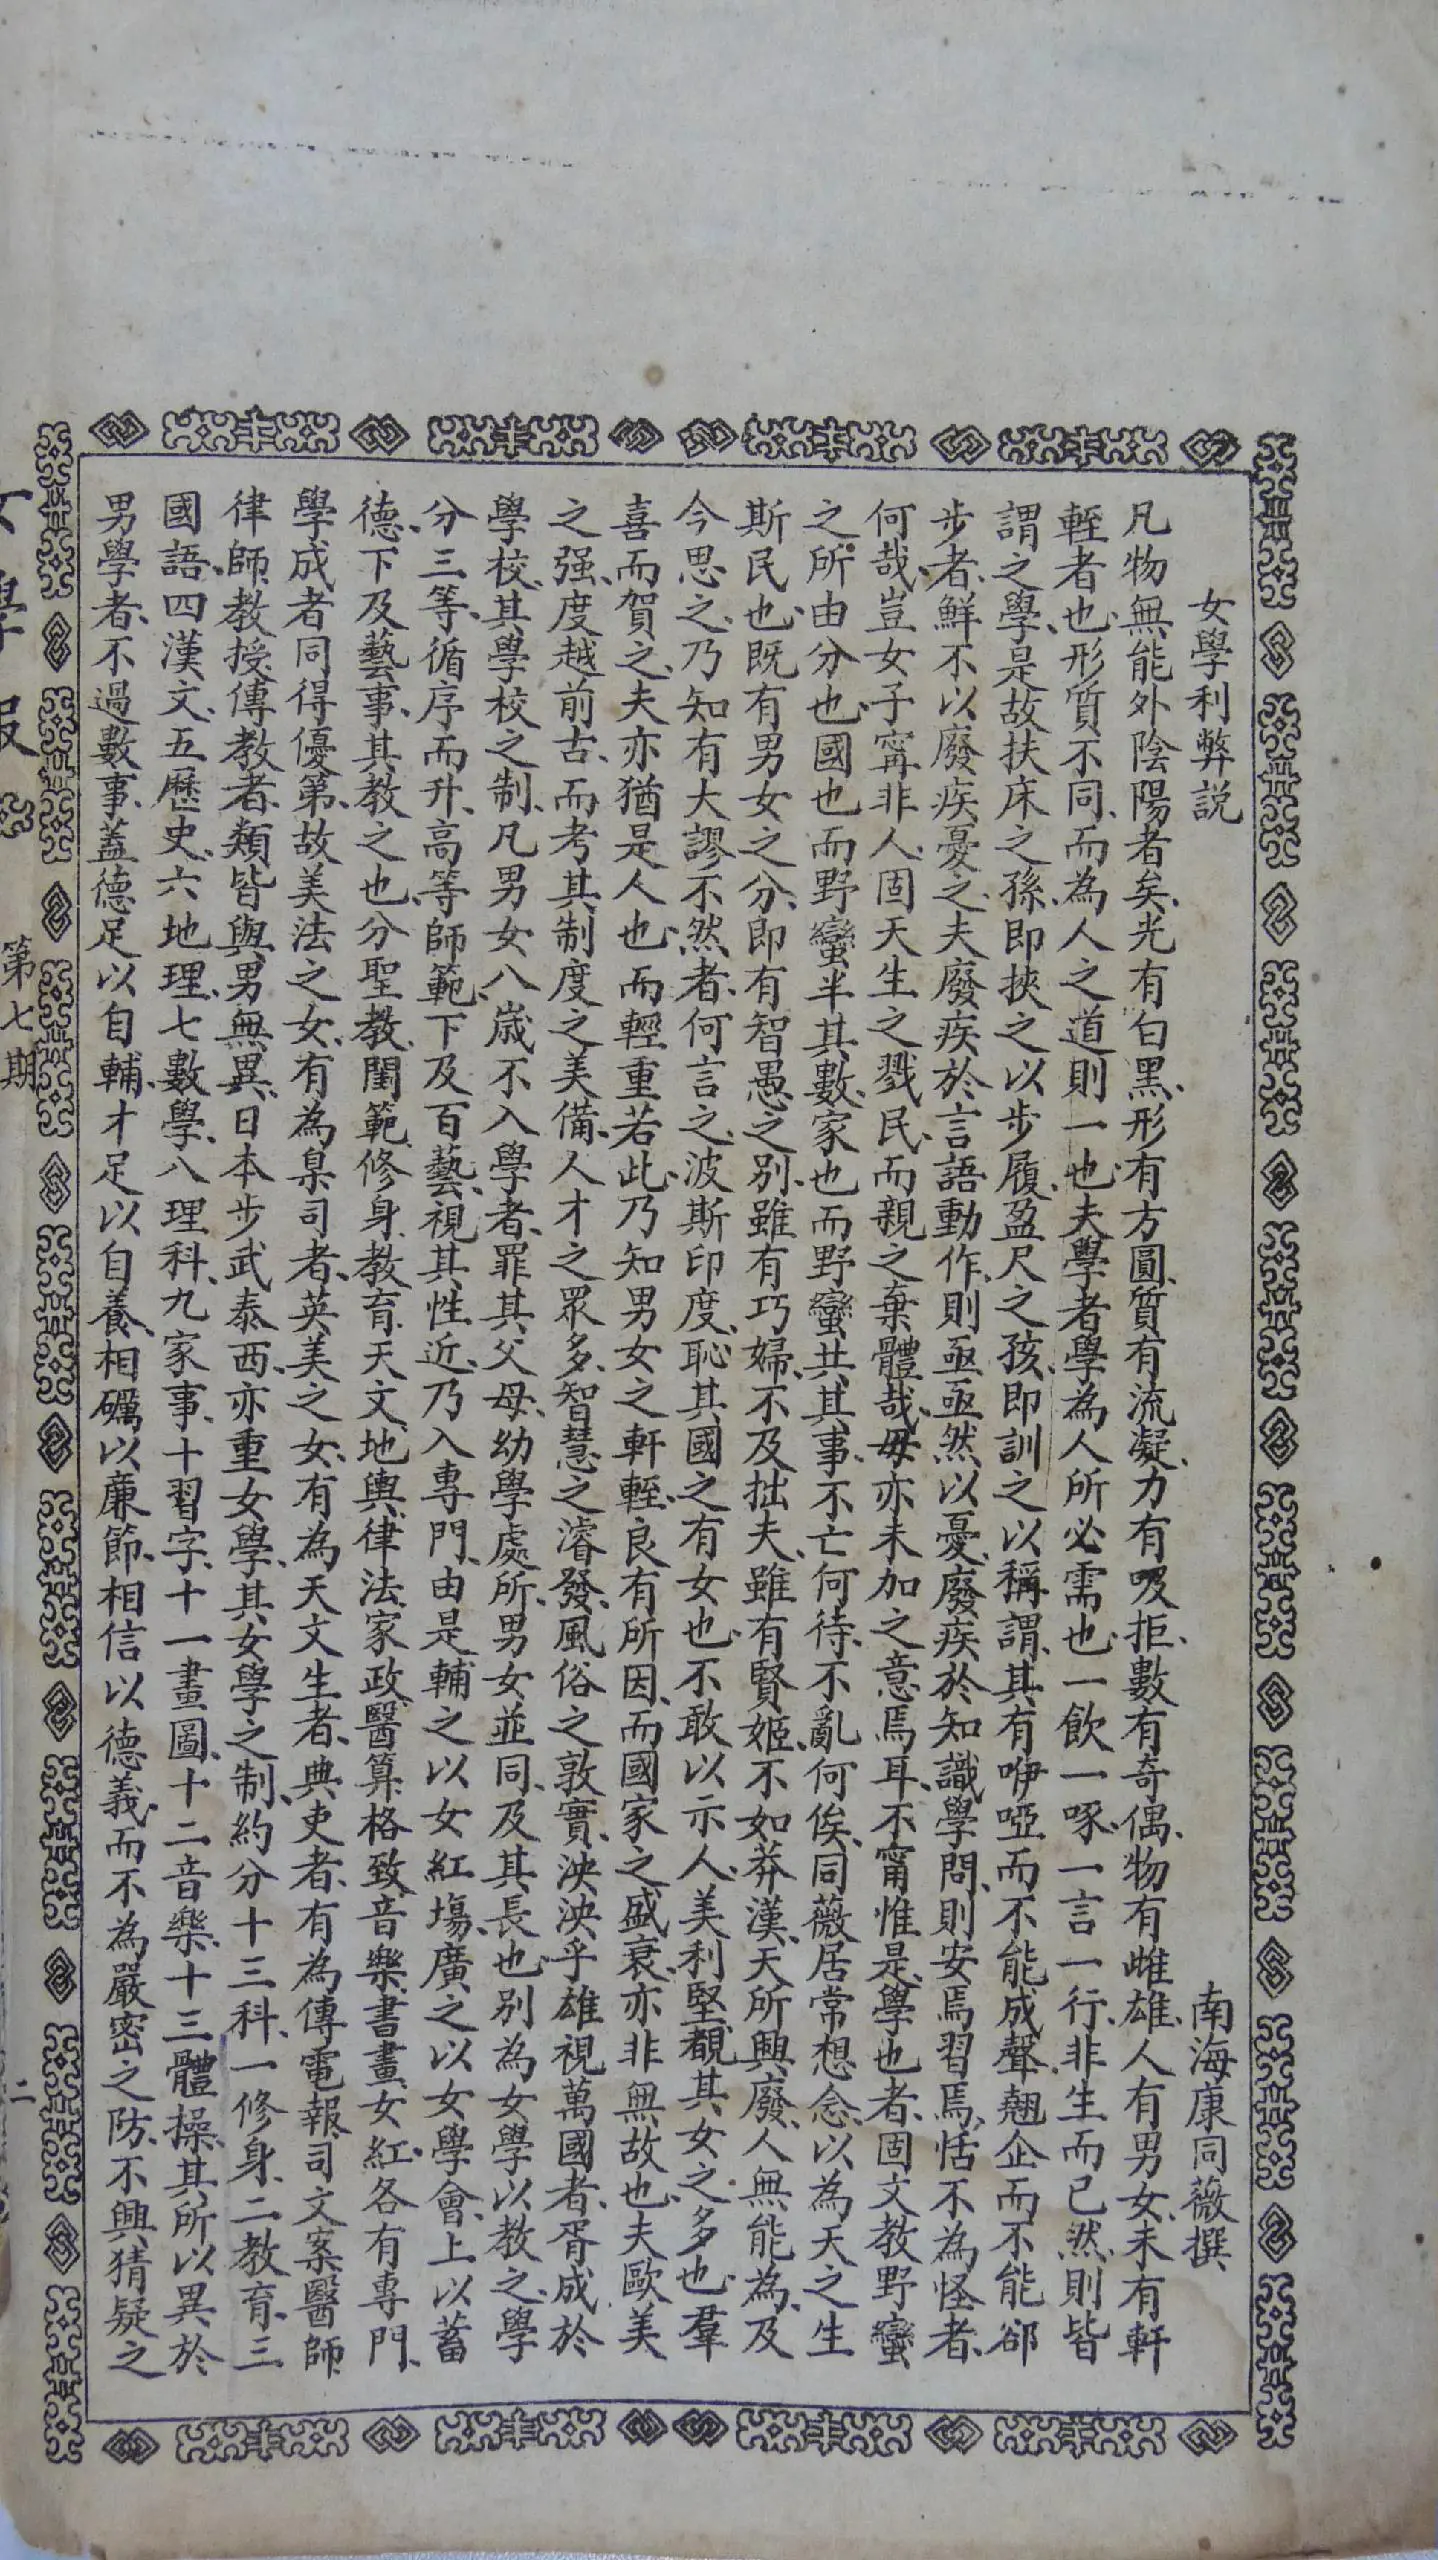 女學利弊說　南海康同薇撰
凡物無能外陰陽者矣、光有白黑、形有方圓、質有流凝、力有吸拒、數有奇偶、物有雌雄、人有男女、未有軒
輊者也、形質不同、而為人之道則一也、夫學者學為人所必需也、一飲一啄、一言一行、非生而已然、則皆
謂之學、是故扶床之孫、即挾之以步履、盈尺之孩、即訓之以稱謂、其有咿啞而不能成聲、翹企而不能卻
步者、鮮不以廢疾憂之、夫廢疾於言語動作、則亟亟然以憂、廢疾於知識學問、則安焉習焉、恬不為怪者、
何哉、豈女子寗非人、固天生之戮民、而親之棄體哉、毋亦未加之意焉耳、不甯惟是、學也者、固文教野蠻
之所由分也、國也而野蠻半其數、家也而野蠻共其事、不亡何待、不亂何俟、同薇居常想念、以為天之生
斯民也、既有男女之分、即有智愚之別、雖有巧婦、不及拙夫、雖有賢姬、不如莽漢、天所興廢、人無能為、及
今思之、乃知有大謬不然者、何言之、波斯印度、恥其國之有女也、不敢以示人、美利堅覩其女之多也、羣
喜而賀之、夫亦猶是人也、而輕重若此、乃知男女之軒輊、良有所因、而國家之盛衰、亦非無故也、夫歐美
之强、度越前古、而考其制度之美備、人才之眾多、智慧之濬發、風俗之敦實、泱泱乎雄視萬國者、胥成於
學校、其學校之制、凡男女八歲不入學者、罪其父母、幼學處所、男女並同、及其長也、別為女學以教之、學
分三等、循序而升、高等師範、下及百藝、視其性近、乃入專門、由是輔之以女紅塲、廣之以女學會、上以蓄
德、下及藝事、其教之也、分聖教、閨範、修身、教育、天文、地輿、律法、家政、醫算、格致、音樂、書畫、女紅、各有專門、
學成者同得優第、故美法之女、有為臬司者、英美之女、有為天文生者、典吏者、有為傳電報、司文案、醫師
律師、教授、傳教者、類皆與男無異、日本步武泰西、亦重女學、其女學之制、約分十三科、一修身、二教育、三
國語、四漢文、五歷史、六地理、七數學、八理科、九家事、十習字、十一畫圖、十二音樂、十三體操、其所以異於
男學者、不過數事、蓋德足以自輔、才足以自養、相礪以廉節、相信以德義、而不為嚴密之防、不興猜疑之
女學報
第七期
二